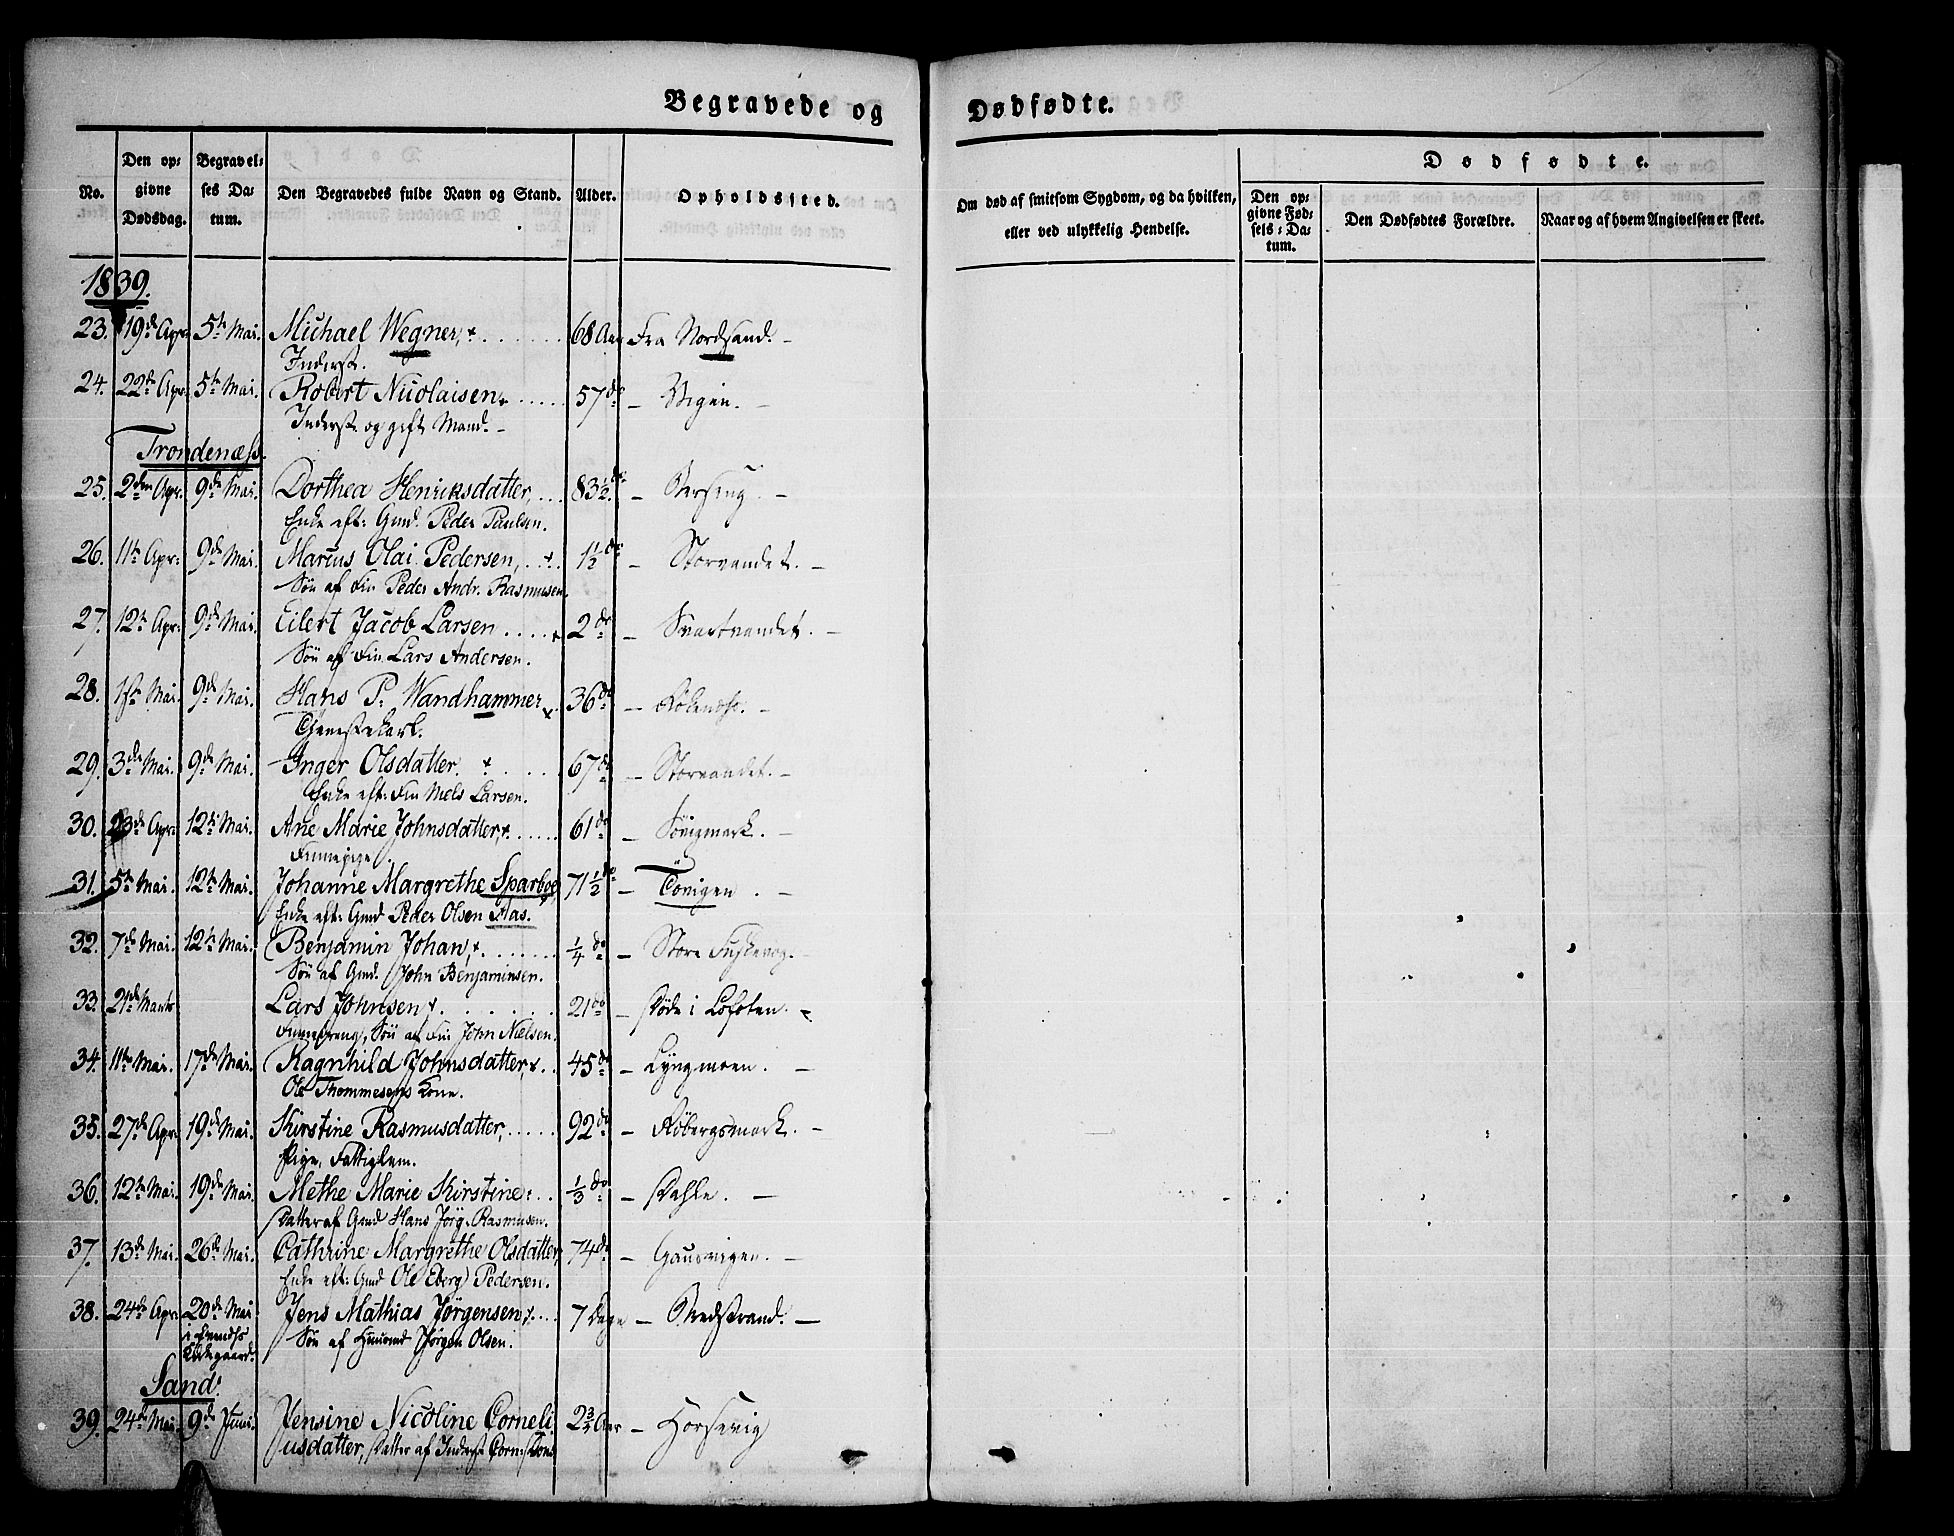 Begravede og Dødfødte.
No.
Den opgivne Dødsdag.
Begravelses Datum.
Den Begravedes fulde Navn og Stand.
Alder.
Opholdssted.
Om død af smitsom Sygdom, og da hvilken,
eller ved ulykkelig Hendelse.
Dødfødte.
Den opgivne Fødsels-Datum.
Den Dødfødtes Forældre.
Naar og af hvem Angivelsen er skeet.
1839.
23. 19de Apr: 5te Mai. Michael Wegner, 68 Aar Fra Nordsand. –
Inderst.
24. 22de Apr: 5te Mai. Robert Nicolaisen 57 do – Vigen. –
Inderst og gift Mand. –
Trondenæss.
25. 2den Apr: 9de Mai. Dorthea Henriksdatter, 83½ do – Bersing. –
Enke eft: Gmd. Peder Paulsen.
26. 11te Apr: 9de Mai. Marcus Olai Pedersen, 1½ do – Storvandet. –
Søn af Fin Peder Andr. Rasmusen.
27. 12te Apr: 9de Mai. Eilert Jacob Larsen 2 do – Svartvandet. –
Søn af Fin Lars Andersen.
28. 1ste Mai. 9de Mai. Hans P. Wandhammer 36 do –
Tjenestekarl.
29. 3die Mai. 9de Mai. Inger Olsdatter. 67 do – Storvandet. –
Enke eft: Fin Niels Larsen.
30. 23de Apr: 12te Mai. Ane Marie Johnsdatter, 61 do – Sövigmark. –
Finnepige.
31. 5te Mai. 12te Mai. Johanne Margrethe Sparboe, 71½ do – Tövigen. –
Enke eft: Gmd Peder Olsen Aas.
32. 7de Mai. 12te Mai. Benjamin Johan, ¼ do – Store
Søn af Gmd. John Benjaminsen.
33. 21de Marts Lars Johnsen, 21 do – Döde i Lofoten. –
Finnedreng, Søn af Fin John Nielsen.
34. 11te Mai. 17de Mai. Ragnhild Johnsdatter, 45 do – Lyngmoen. –
Ole Thommesens Kone.
35. 27de Apr: 19de Mai. Kirstine Rasmusdatter, 92 do – Röbergsmark. –
Pige, Fattiglem.
36. 12te Mai. 19de Mai. Methe Marie Kirstine, ⅓ do – Dahle. –
Datter af Gmd Hans Jörg. Rasmusen.
37. 13de Mai. 26de Mai. Cathrine Margrethe Olsdatter, 74 do – Gausvigen. –
Enke eft: Gmd Ole Eberg Pedersen.
38. 24de Apr: 20de Mai Jens Mathias Jörgensen, 7 Dage – Medstrand. –
i Evendss Kirkegaard. Søn af Huusmd Jörgen Olsen.
Sand.
39. 24de Mai. 9de Juni. Jensine Nicoline Corneli- 2¾ Aar – Horsevig
usdatter, Datter af Inderst Corn: